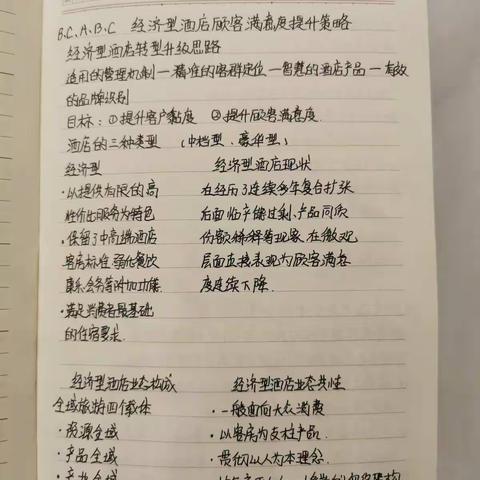 B.C.A.B.C 经济型酒店顾客满意度提升策略
经济型酒店转型升级思路
适用的管理机制一精准的客群定位一智慧的酒店产品一有效
的品牌识别
目标：①提升客户黏度 ②提升顾客满意度
酒店的三种类型 （中档型、豪华型）
经济型 经济型酒店现状
·以提供有限的高 在经历了连续多年复合扩张
性价比服务为特色 后面临产能过剩、产品同质
·保留了中高端酒店 份额稀释等现象，在微观
客房标准，弱化餐饮 层面直接表现为顾客满意
康乐会务等附加功能 度连续下降.
·满足消费者最基础
的住宿要求.
经济型酒店业态构成 经济型酒店业态共性
全域旅游四个载体 ·一般面向大众消费
·资源全域 ·以客房为支柱产品.
·产品全域 ·贯彻以人为本理念.
·产业全域